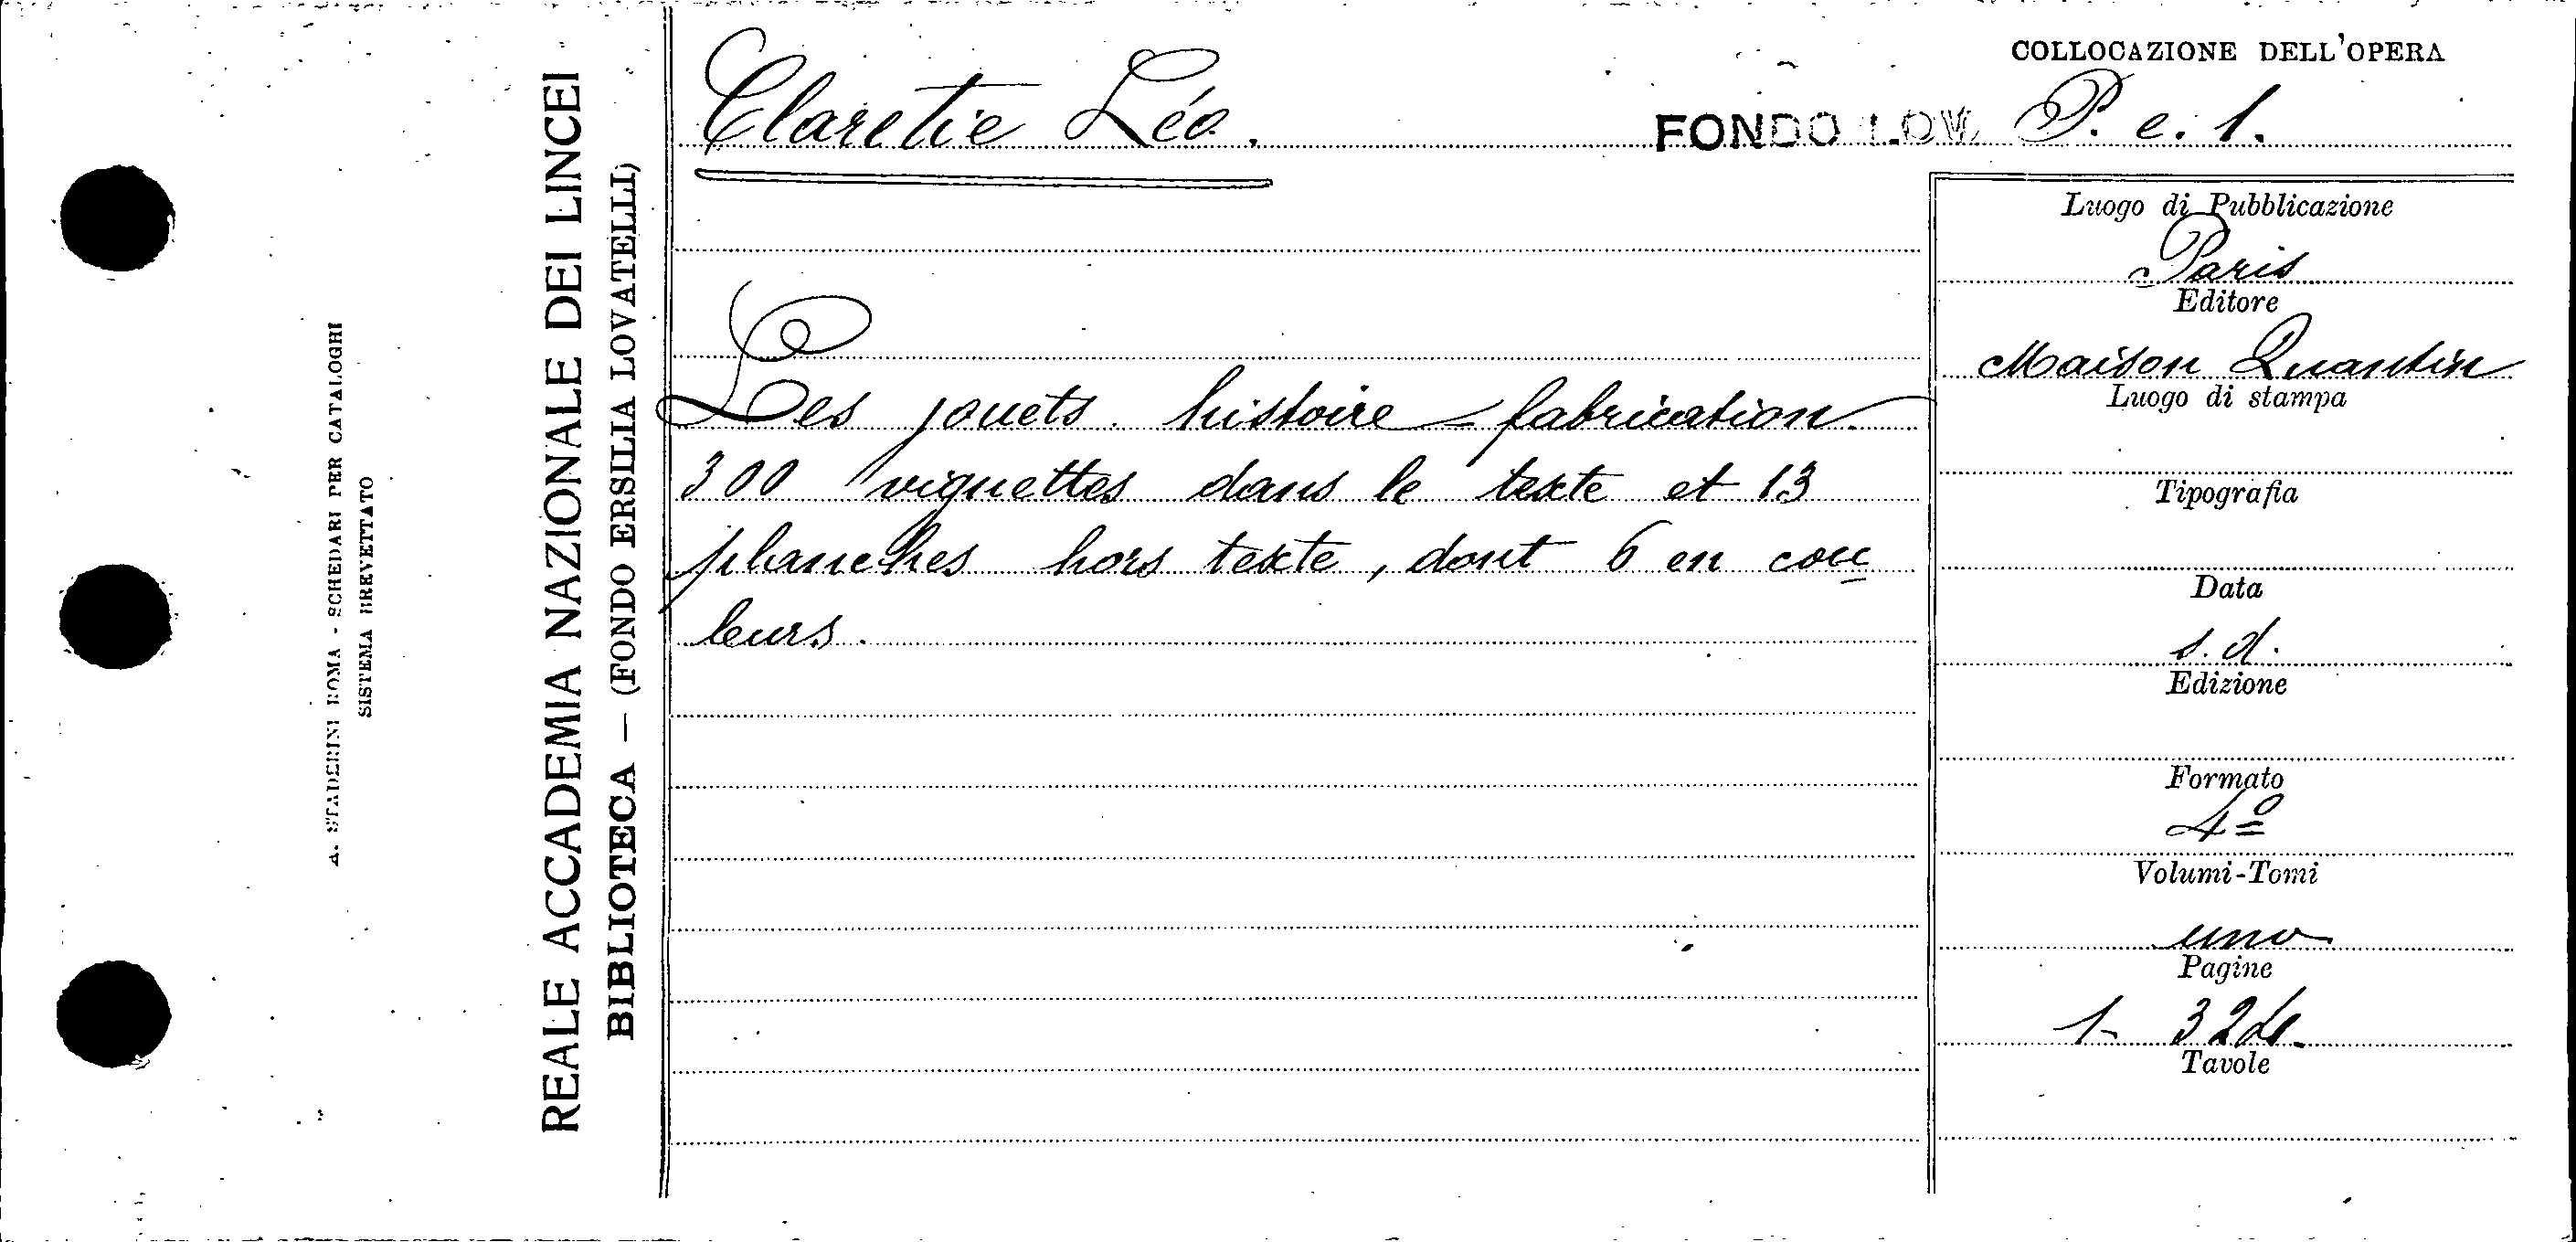 A. STADERINI ROMA - SCHEDARI PER CATALOGHI
SISTEMA BREVETTATO
REALE ACCADEMIA NAZIONALE DEI LINCEI
BIBLIOTECA — (FONDO ERSILIA LOVATELLI)
Claretie Léo.
Les jouets. histoire - fabrication.
300 vignettes dans le texte et 13
planches hors texte, dont 6 en cou
leurs.
COLLOCAZIONE DELL'OPERA
FONDO LOV. P. c. 1.
Luogo di Pubblicazione
Paris
Editore
Maison Quantin
Luogo di stampa
Tipografia
Data
s. d.
Edizione
Formato
4º
Volumi-Tomi
uno
Pagine
1-
Tavole